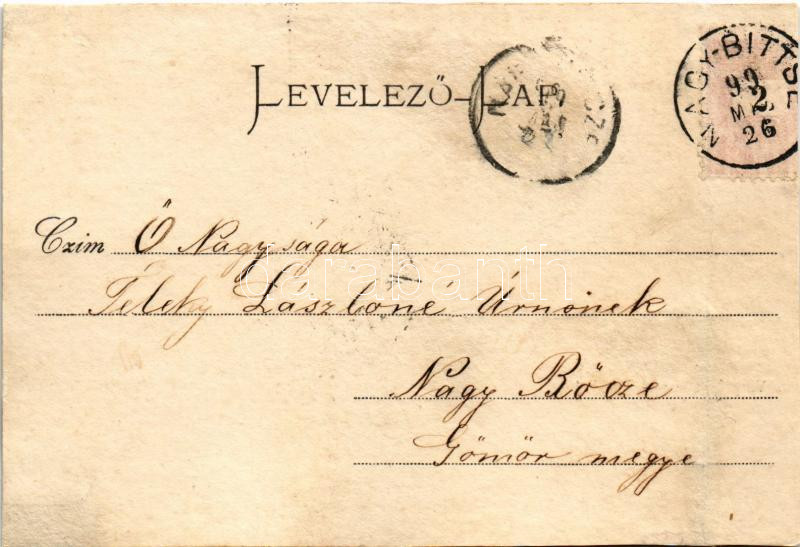 LEVELEZŐ-LAP
NAGY-BITTSE
99
MÁJ
26
Czim Ő Nagysága
Teleky Lászloné Úrnőnek
Nagy Rőcze
Gömör megye
darabanth